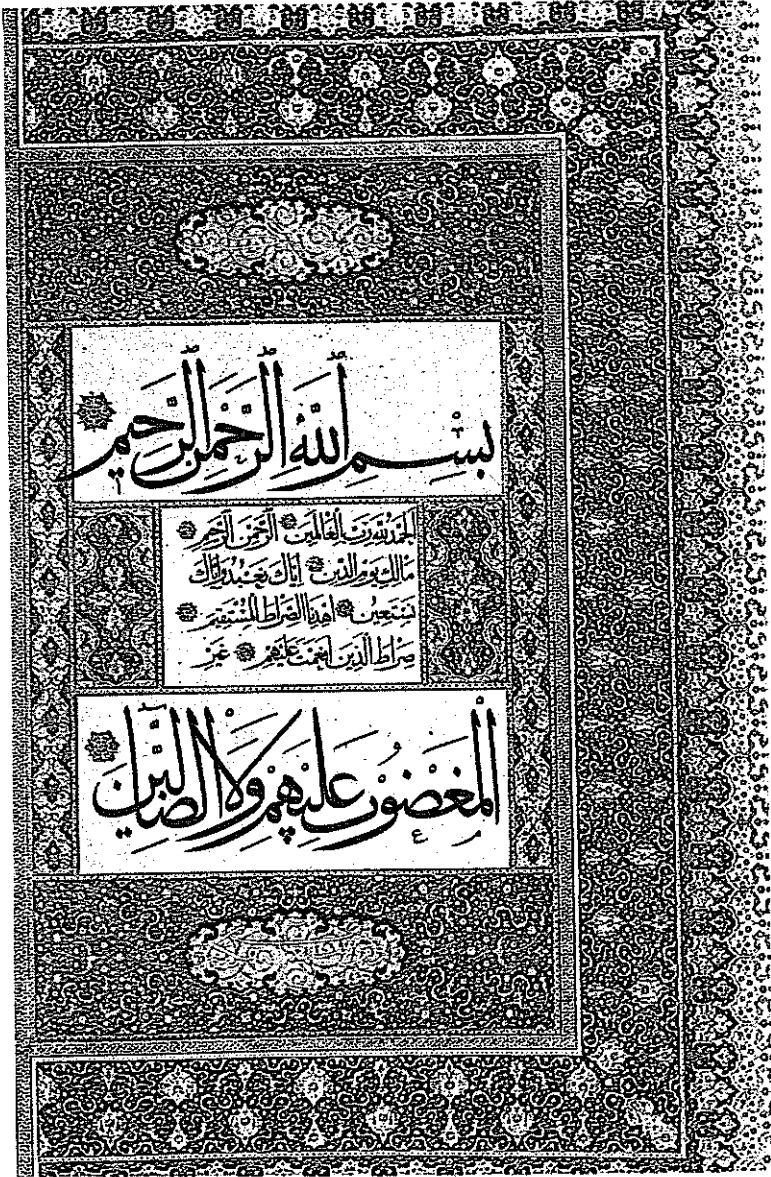 بِسْمِ اللَّهِ الرَّحْمٰنِ الرَّحِيمِ
الْحَمْدُ لِلَّهِ رَبِّ الْعَالَمِينَ الرَّحْمٰنِ الرَّحِيمِ
مَالِكِ يَوْمِ الدِّينِ إِيَّاكَ نَعْبُدُ وَإِيَّاكَ
نَسْتَعِينُ اهْدِنَا الصِّرَاطَ الْمُسْتَقِيمَ
صِرَاطَ الَّذِينَ أَنْعَمْتَ عَلَيْهِمْ غَيْرِ
الْمَغْضُوبِ عَلَيْهِمْ وَلَا الضَّالِّينَ